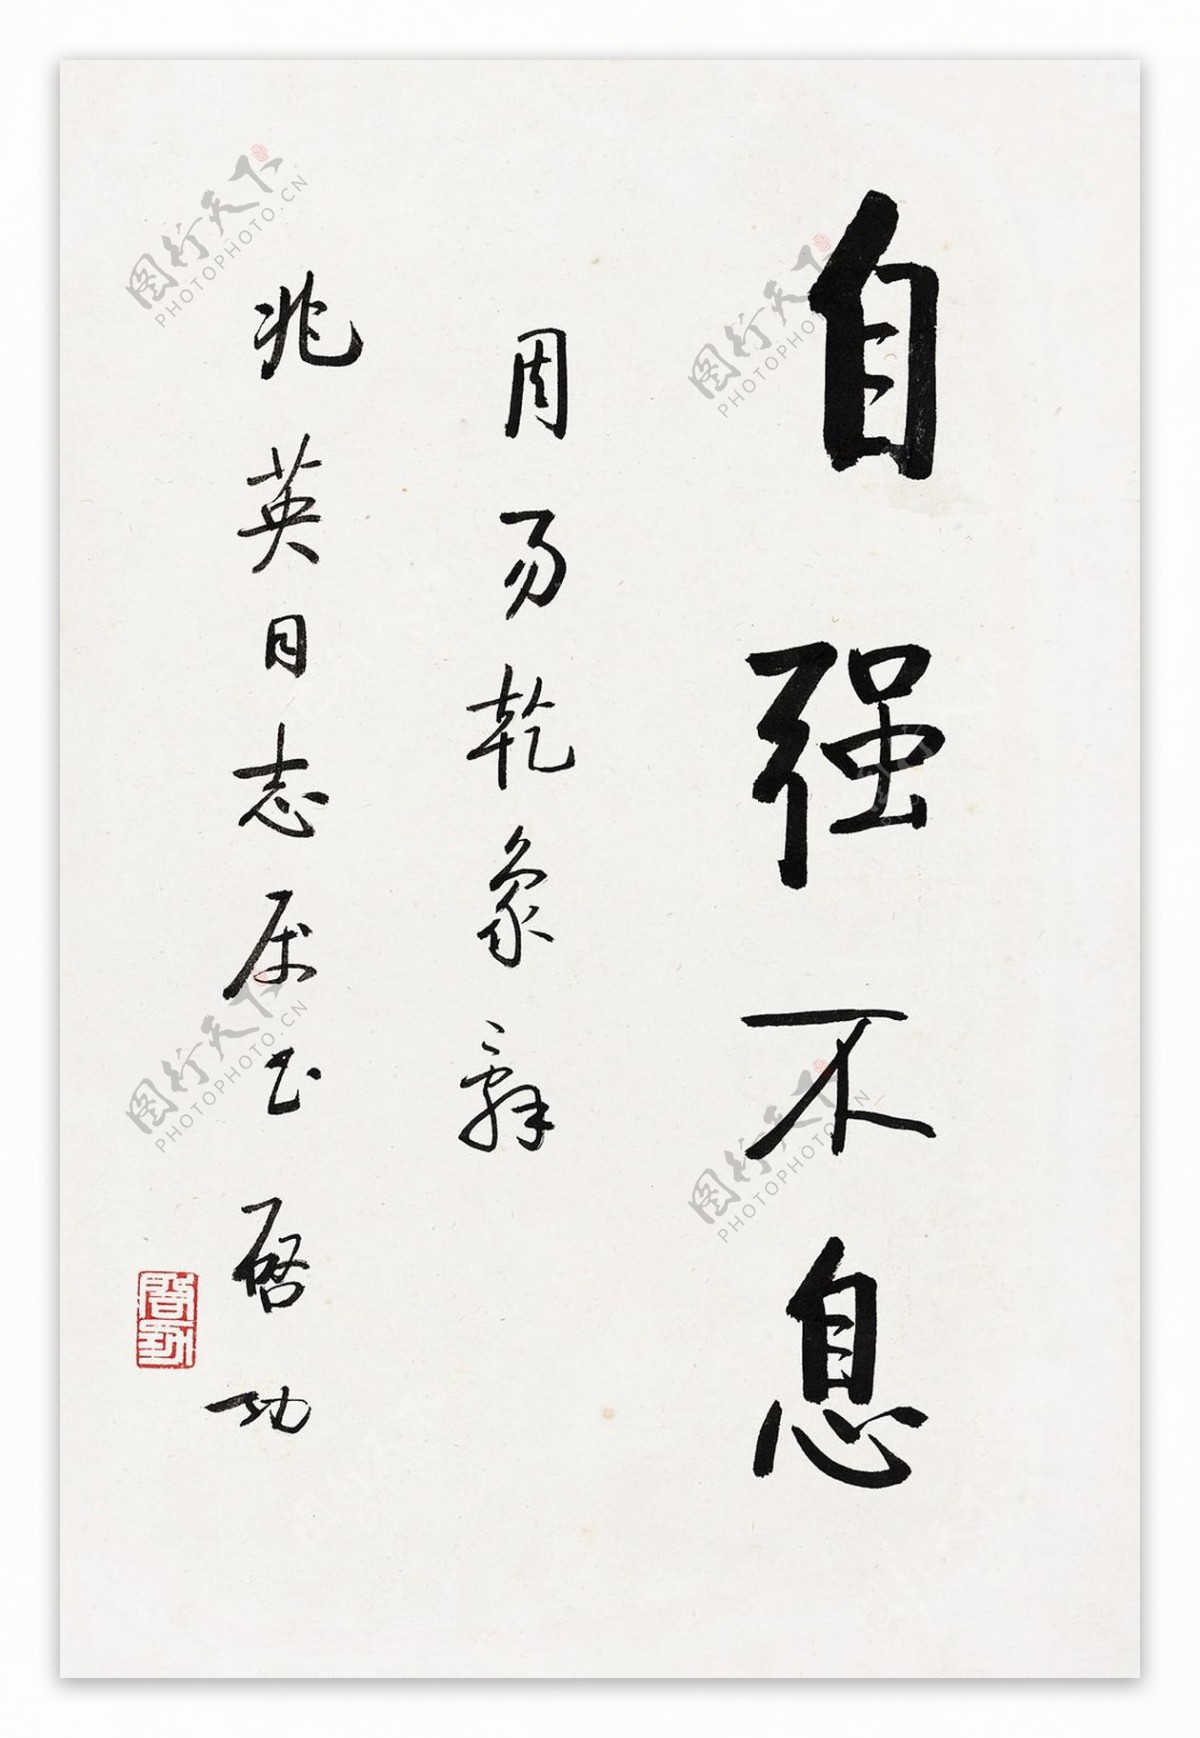 自强不息
周易乾象辞
兆英同志属书 启功
启功
图行天下
PHOTOPHOTO.CN
图行天下
PHOTOPHOTO.CN
图行天下
PHOTOPHOTO.CN
图行天下
PHOTOPHOTO.CN